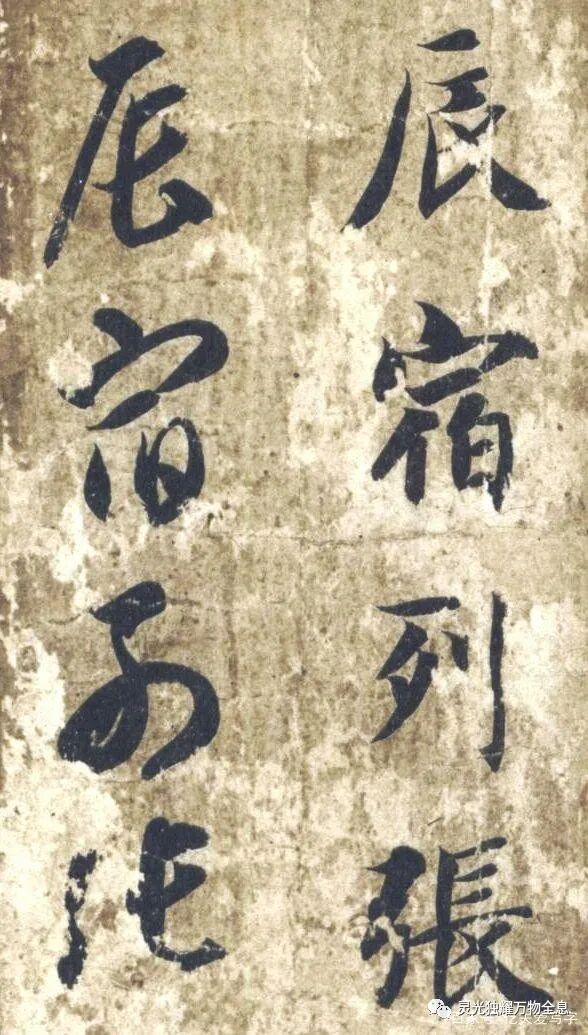 辰宿列張
辰宿列張
灵光独耀万物全息